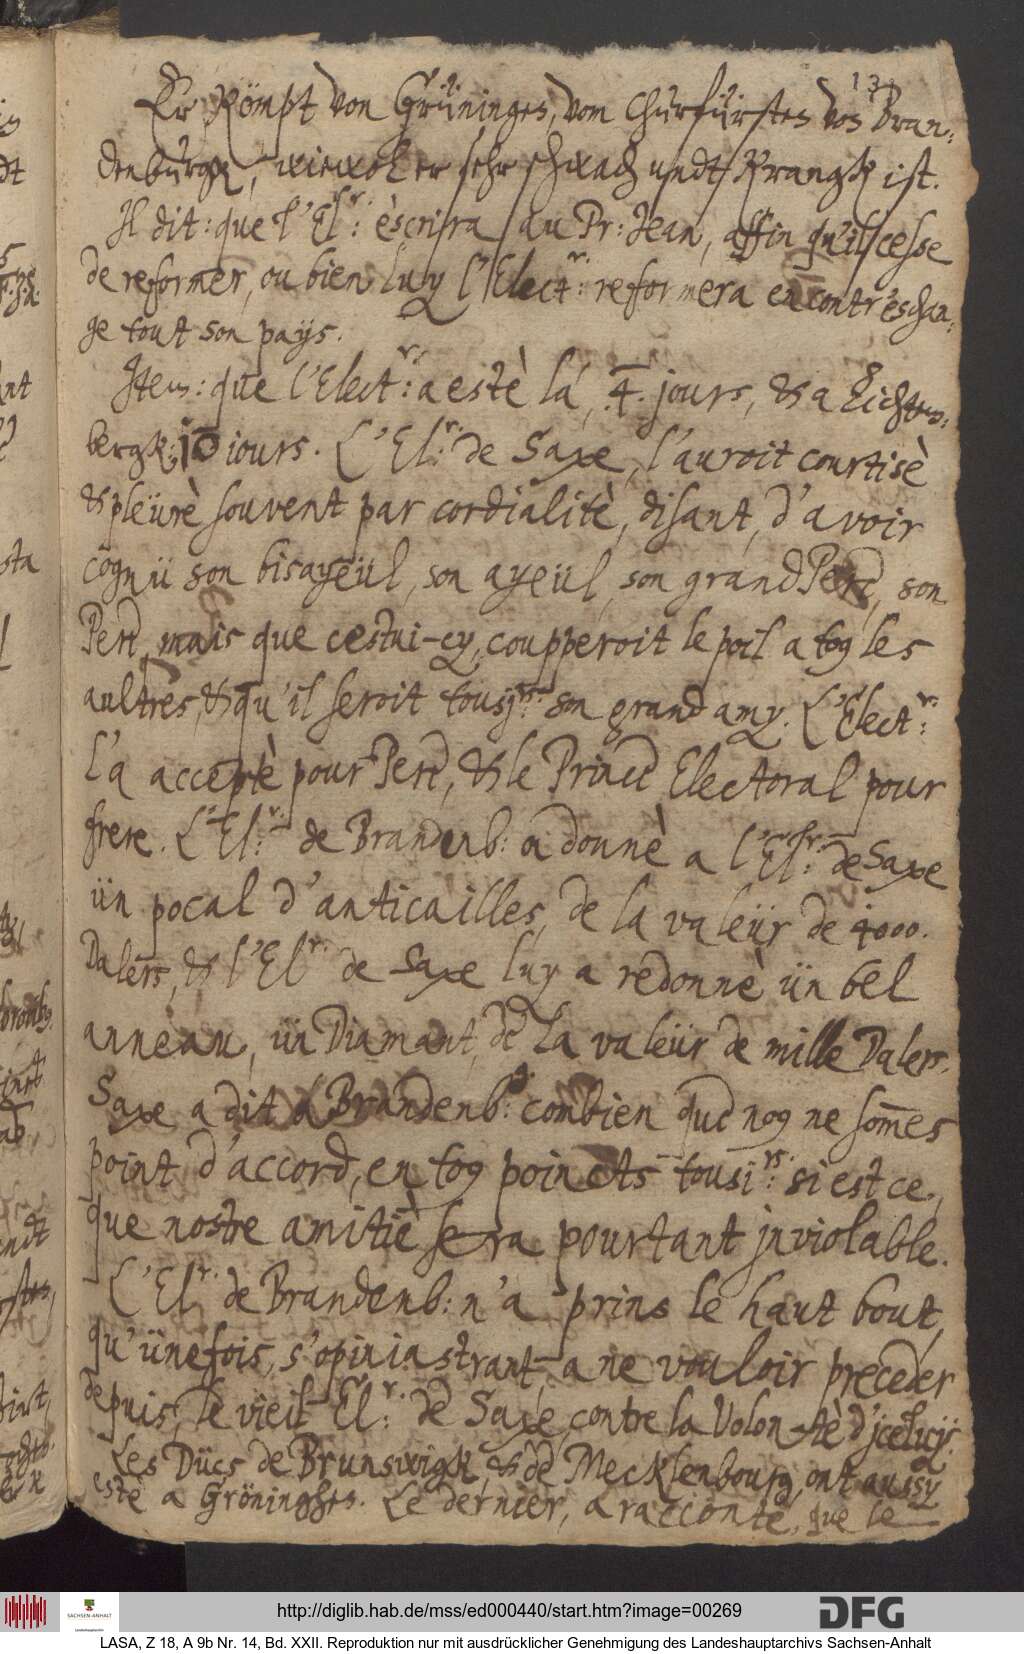 131
Er kömpt von Grüningen, vom Churfürsten von Bran-
denburgk, wiewol er sehr schwach undt krangk ist.
Il dit: que l'El.r: èscrira au Pr: Jean, affin qu'il cesse
de reformer, ou bien luy l'Elect.r: reformera en contr'eschan-
ge tout son paÿs.
Item: que l'Elect.r: a estè là, 4. jours, & a Lichten-
bergk: 10 iours. L'El.r: de Saxe, l'auroit courtisè
& pleürè souvent par cordialitè, disant, d'avoir
cognü son bisayeül, son ayeül, son grand Pere, son
Pere, mais que cestui-cy, coupperoit le poil a toꝰ les
aultres, & qu'il seroit tousj.rs: son grand amy. L'Elect.r:
l'a acceptè pour Pere, & le Prince Electoral pour
frere. L'El.r: de Brandenb: a donnè a l'El.r: de Saxe
ün pocal d'anticailles, de la valeür de 4000.
Dalers, & l'El.r: de Saxe luy a redonnè ün bel
anneau, ün Diamant, de la valeür de mille Dalers.
Saxe a dit a Brandenb.g: combien que noꝰ ne som̄es
point d'accord, en toꝰ poincts tousi.rs: si est ce,
que nostre amitiè sera pourtant inviolable.
L'El.r: de Brandenb: n'a prins le haut bout,
qu'üne fois, s'opiniastrant, a ne vouloir preceder
depuis, le vieil El.r: de Saxe, contre la volontè d'jceluÿ.
Les Dücs de Brunswigk, & de Mecklenbourg, ont aussy
estè a Gröninghen. Le dernier, a raccontè, que le
http://diglib.hab.de/mss/ed000440/start.htm?image=00269
SACHSEN-ANHALT
Landeshauptarchiv
DFG
LASA, Z 18, A 9b Nr. 14, Bd. XXII. Reproduktion nur mit ausdrücklicher Genehmigung des Landeshauptarchivs Sachsen-Anhalt